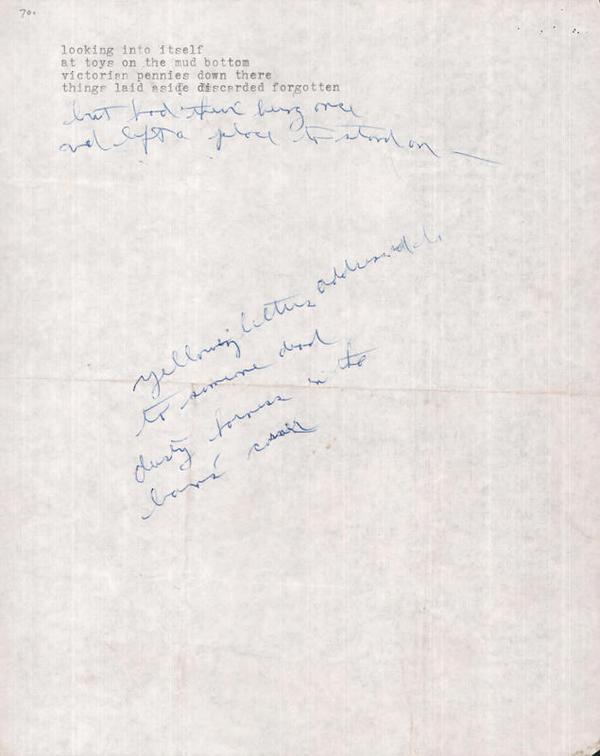 70.
looking into itself
at toys on the mud bottom
victorian pennies down there
things laid aside discarded forgotten
but had their being once
and left a place to stand on —
yellowing letters addressed
to someone dead
dusty harness in the
barns'